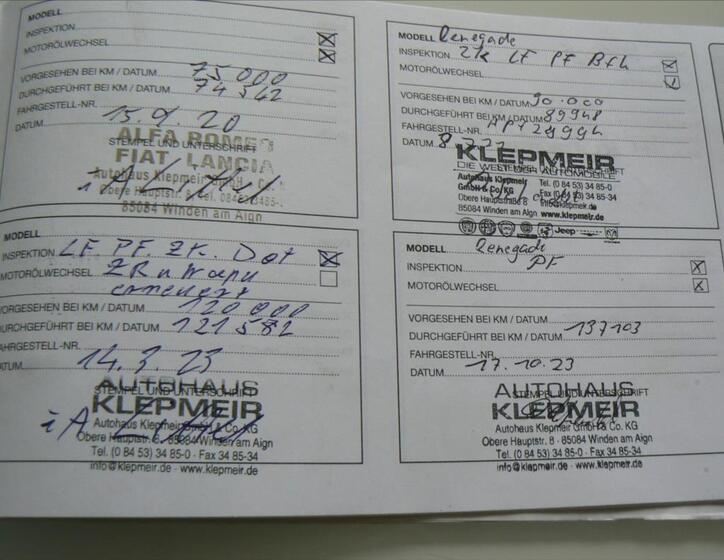 MODELL
INSPEKTION
MOTORÖLWECHSEL
VORGESEHEN BEI KM / DATUM 75 000
DURCHGEFÜHRT BEI KM / DATUM 74542
FAHRGESTELL-NR.
DATUM 15.9.20
STEMPEL UND UNTERSCHRIFT
ALFA ROMEO
FIAT, LANCIA
Autohaus Klepmeir GmbH & Co.
Obere Hauptstr. 8
85084 Winden am Aign
MODELL Renegade
INSPEKTION ZK LF PF Bfl
MOTORÖLWECHSEL
VORGESEHEN BEI KM / DATUM 90.000
DURCHGEFÜHRT BEI KM / DATUM 89948
FAHRGESTELL-NR.
DATUM
KLEPMEIR
DIE WELT DER AUTOMOBILE
Autohaus Klepmeir
GmbH & Co. KG
Obere Hauptstraße 8
85084 Winden am Aign
Tel. (0 84 53) 34 85-0
Fax (0 84 53) 34 85-34
info@klepmeir.de
www.klepmeir.de
Jeep
MODELL
INSPEKTION LF PF. ZK. Dot
MOTORÖLWECHSEL ZR u Wapu
erneuert
VORGESEHEN BEI KM / DATUM 120 000
DURCHGEFÜHRT BEI KM / DATUM 121582
FAHRGESTELL-NR.
DATUM 14.3.23
STEMPEL UND UNTERSCHRIFT
AUTOHAUS
KLEPMEIR
i A
Autohaus Klepmeir GmbH & Co. KG
Obere Hauptstr. 8 · 85084 Winden am Aign
Tel. (0 84 53) 34 85-0 · Fax 34 85-34
info@klepmeir.de · www.klepmeir.de
MODELL Renegade
INSPEKTION PF
MOTORÖLWECHSEL
VORGESEHEN BEI KM / DATUM
DURCHGEFÜHRT BEI KM / DATUM 137103
FAHRGESTELL-NR.
DATUM 17.10.23
STEMPEL UND UNTERSCHRIFT
AUTOHAUS
KLEPMEIR
Autohaus Klepmeir GmbH & Co. KG
Obere Hauptstr. 8 · 85084 Winden am Aign
Tel. (0 84 53) 34 85-0 · Fax 34 85-34
info@klepmeir.de · www.klepmeir.de